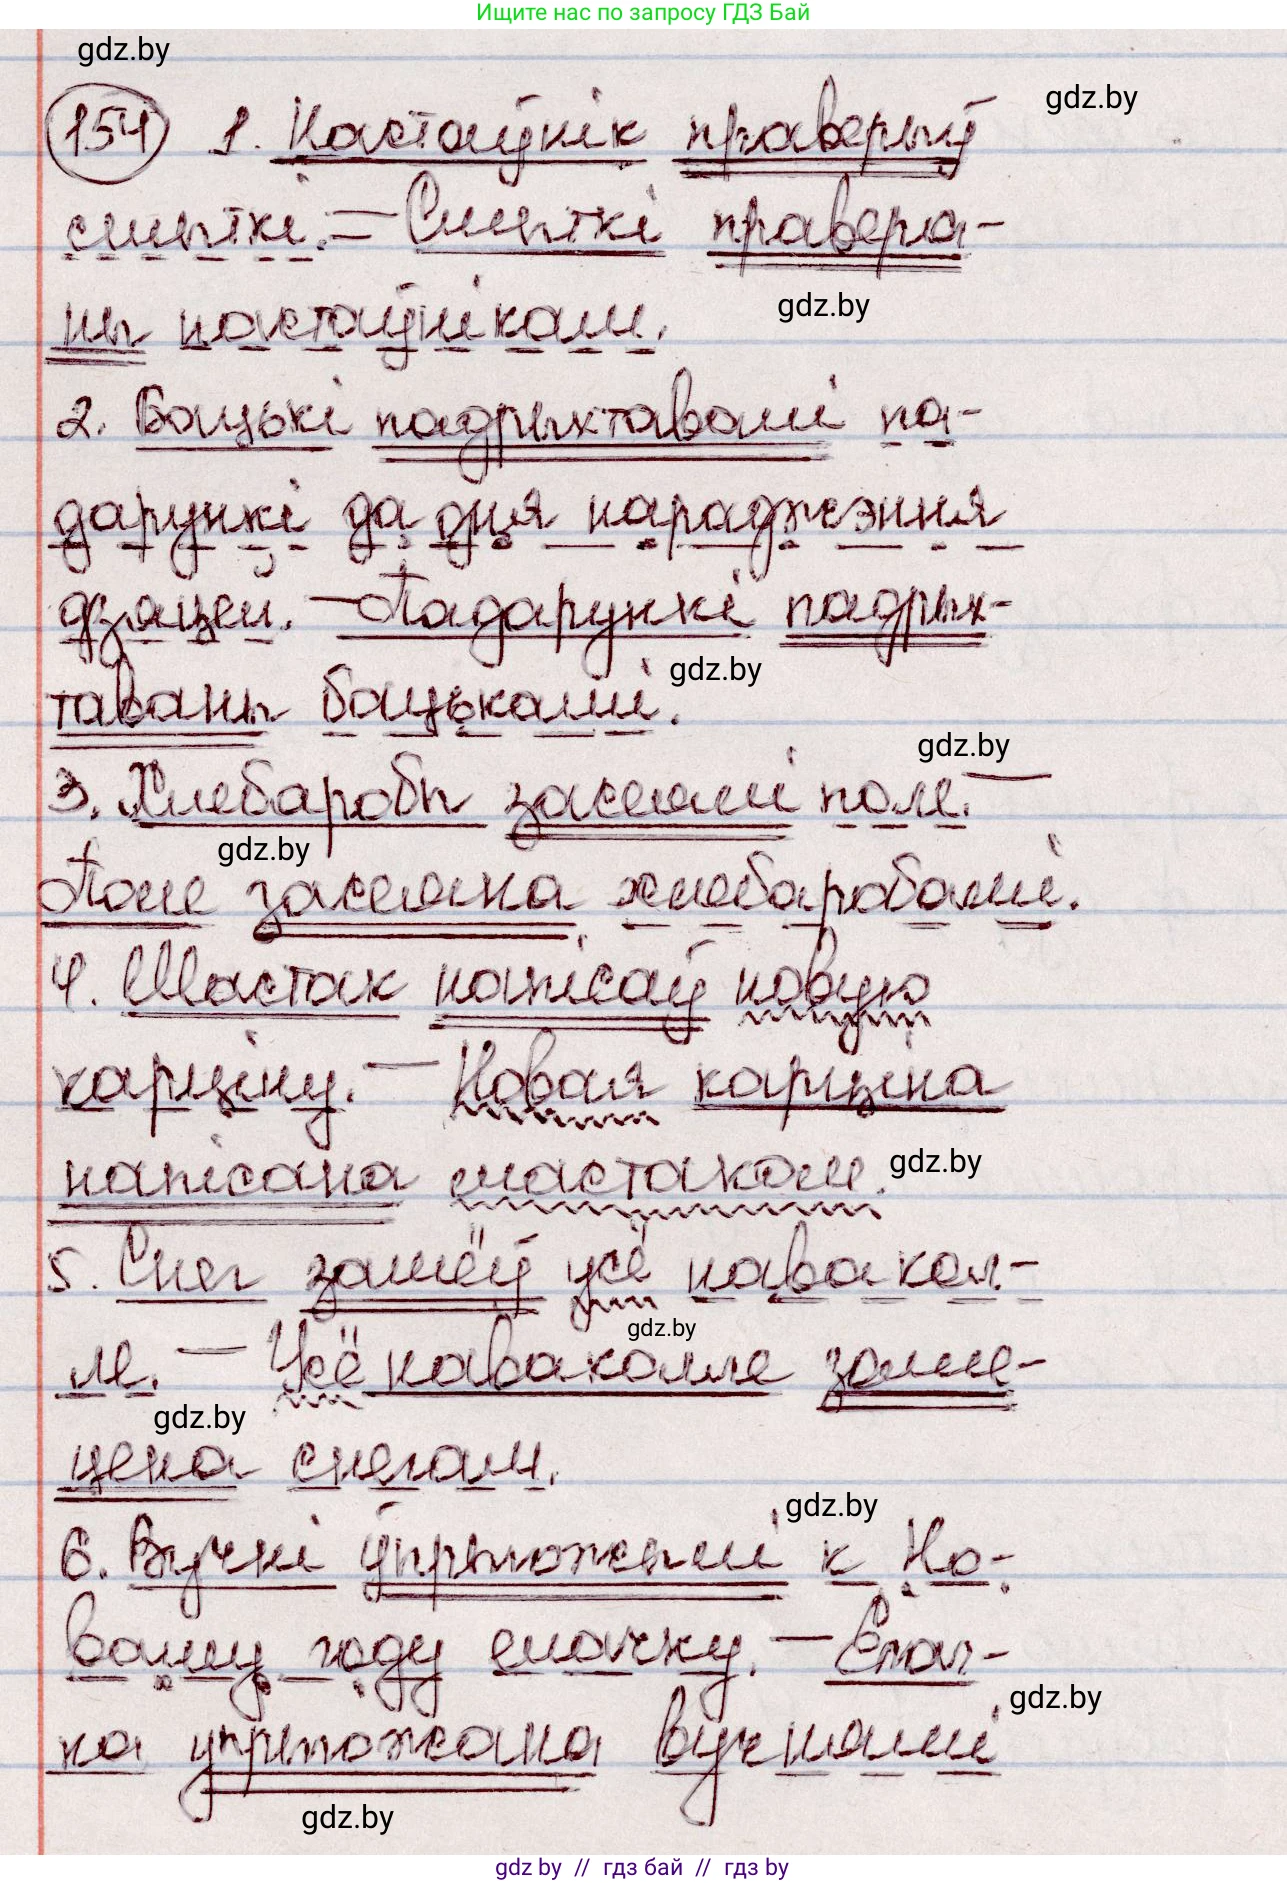 Ищите нас по запросу ГДЗ Бай
gdz.by
154 1. Настаўнік праверыў
gdz.by
сшыткі. – Сшыткі правера-
ны настаўнікам.
gdz.by
2. Бацькі падрыхтавалі па-
дарункі да дня нараджэння
дзяцей. – Падарункі падрых-
таваны бацькамі.
gdz.by
gdz.by
3. Хлебаробы засеялі поле. –
gdz.by
Поле засеяна хлебаробамі.
4. Мастак напісаў новую
карціну. – Новая карціна
напісана мастаком.
gdz.by
5. Снег замёў усё навакол-
gdz.by
ле. – Усё наваколле заме-
gdz.by
цена снегам.
gdz.by
6. Вучні ўпрыгожылі к Но-
ваму году ёлачку. – Ёлач-
gdz.by
ка упрыгожана вучнямі
gdz.by
gdz by // гдз бай // гдз by